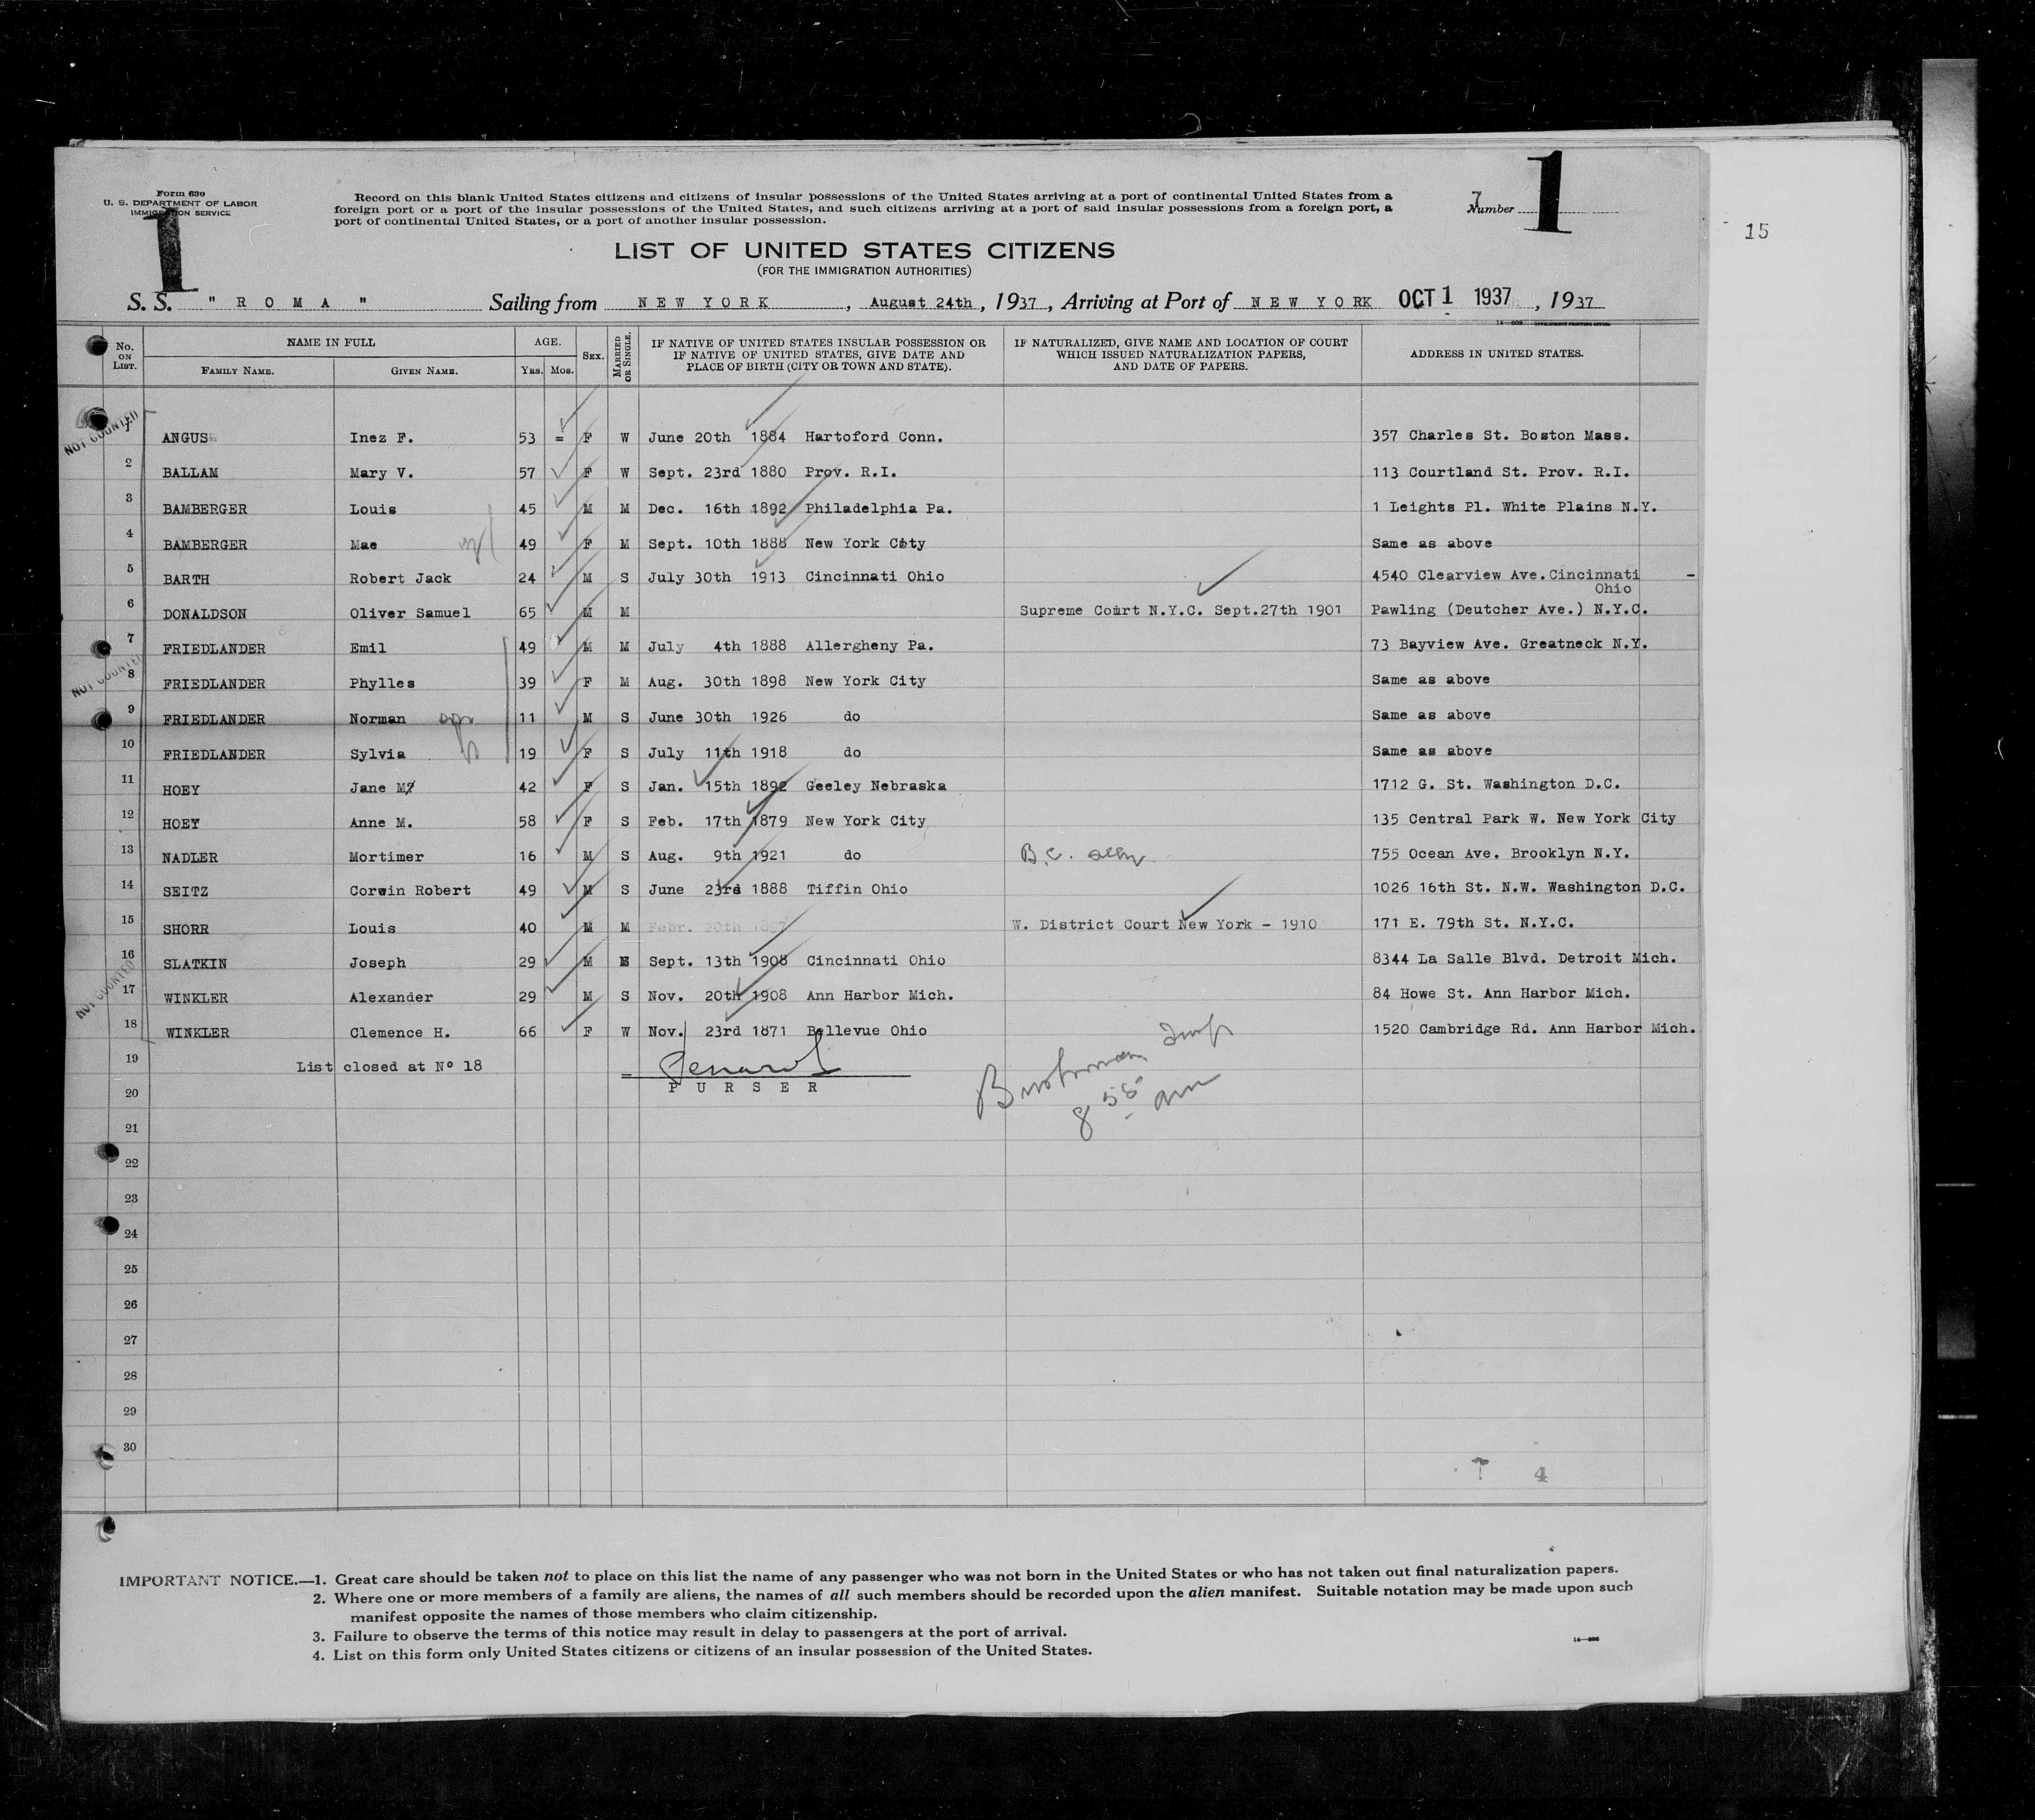 Form 630
U. S. DEPARTMENT OF LABOR
IMMIGRATION SERVICE
1
Record on this blank United States citizens and citizens of insular possessions of the United States arriving at a port of continental United States from a
foreign port or a port of the insular possessions of the United States, and such citizens arriving at a port of said insular possessions from a foreign port, a
port of continental United States, or a port of another insular possession.
Number 1
15
LIST OF UNITED STATES CITIZENS
(FOR THE IMMIGRATION AUTHORITIES)
S. S. " R O M A " Sailing from N E W Y O R K , August 24th , 1937 , Arriving at Port of N E W Y O R K OCT 1 1937 , 1937
No. ON LIST. NAME IN FULL AGE. SEX. MARRIED OR SINGLE. IF NATIVE OF UNITED STATES INSULAR POSSESSION OR IF NATIVE OF UNITED STATES, GIVE DATE AND PLACE OF BIRTH (CITY OR TOWN AND STATE). IF NATURALIZED, GIVE NAME AND LOCATION OF COURT WHICH ISSUED NATURALIZATION PAPERS, AND DATE OF PAPERS. ADDRESS IN UNITED STATES.
FAMILY NAME. GIVEN NAME. YRS. MOS.
NOT COUNTED
1 ANGUS Inez F. 53 = F W June 20th 1884 Hartoford Conn. 357 Charles St. Boston Mass.
2 BALLAM Mary V. 57 F W Sept. 23rd 1880 Prov. R.I. 113 Courtland St. Prov. R.I.
3 BAMBERGER Louis 45 M M Dec. 16th 1892 Philadelphia Pa. 1 Leights Pl. White Plains N.Y.
4 BAMBERGER Mae 49 F M Sept. 10th 1888 New York City Same as above
5 BARTH Robert Jack 24 M S July 30th 1913 Cincinnati Ohio 4540 Clearview Ave. Cincinnati -
Ohio
6 DONALDSON Oliver Samuel 65 M M Supreme Court N.Y.C. Sept.27th 1901 Pawling (Deutcher Ave.) N.Y.C.
7 FRIEDLANDER Emil 49 M M July 4th 1888 Allergheny Pa. 73 Bayview Ave. Greatneck N.Y.
NOT COUNTED
8 FRIEDLANDER Phylles 39 F M Aug. 30th 1898 New York City Same as above
9 FRIEDLANDER Norman 11 M S June 30th 1926 do Same as above
10 FRIEDLANDER Sylvia 19 F S July 11th 1918 do Same as above
11 HOEY Jane M. 42 F S Jan. 15th 1892 Geeley Nebraska 1712 G. St. Washington D.C.
12 HOEY Anne M. 58 F S Feb. 17th 1879 New York City 135 Central Park W. New York City
13 NADLER Mortimer 16 M S Aug. 9th 1921 do B.C. 755 Ocean Ave. Brooklyn N.Y.
14 SEITZ Corwin Robert 49 M S June 23rd 1888 Tiffin Ohio 1026 16th St. N.W. Washington D.C.
15 SHORR Louis 40 M M Febr. 20th 1897 W. District Court New York - 1910 171 E. 79th St. N.Y.C.
16 SLATKIN Joseph 29 M Sept. 13th 1908 Cincinnati Ohio 8344 La Salle Blvd. Detroit Mich.
NOT COUNTED
17 WINKLER Alexander 29 M S Nov. 20th 1908 Ann Harbor Mich. 84 Howe St. Ann Harbor Mich.
18 WINKLER Clemence H. 66 F W Nov. 23rd 1871 Bellevue Ohio 1520 Cambridge Rd. Ann Harbor Mich.
19 List closed at Nº 18
P U R S E R
8 55 am
20
21
22
23
24
25
26
27
28
29
30
4
IMPORTANT NOTICE.—1. Great care should be taken not to place on this list the name of any passenger who was not born in the United States or who has not taken out final naturalization papers.
2. Where one or more members of a family are aliens, the names of all such members should be recorded upon the alien manifest. Suitable notation may be made upon such
manifest opposite the names of those members who claim citizenship.
3. Failure to observe the terms of this notice may result in delay to passengers at the port of arrival.
4. List on this form only United States citizens or citizens of an insular possession of the United States.